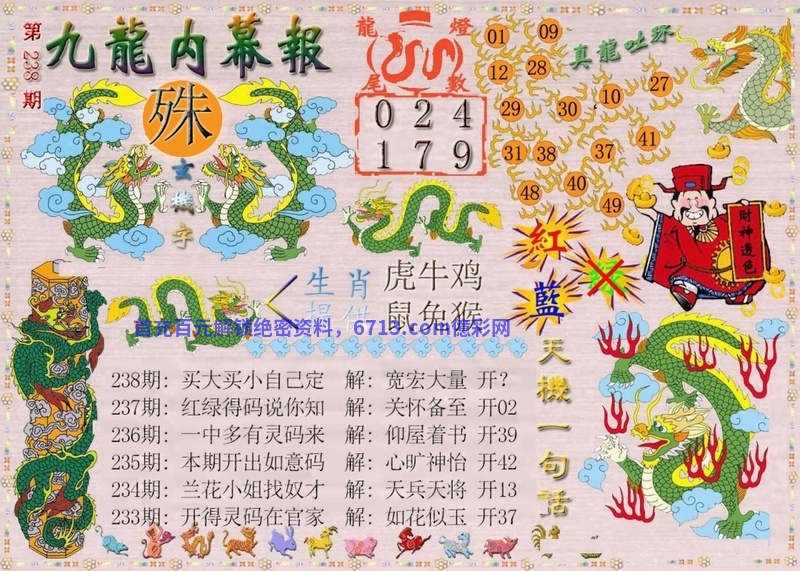 第238期
九龍内幕報
殊
玄機字
龍燈
尾數
0 2 4
1 7 9
01 09
12 28
29 30 10 27
31 38 37 41
48 40 49
真龍吐珠
紅
藍
財神透色
生肖
提供
虎牛鸡
鼠兔猴
首充百元解锁绝密资料，6713.com德彩网
238期: 买大买小自己定 解: 宽宏大量 开?
237期: 红绿得码说你知 解: 关怀备至 开02
236期: 一中多有灵码来 解: 仰屋着书 开39
235期: 本期开出如意码 解: 心旷神怡 开42
234期: 兰花小姐找奴才 解: 天兵天将 开13
233期: 开得灵码在官家 解: 如花似玉 开37
天機一句話